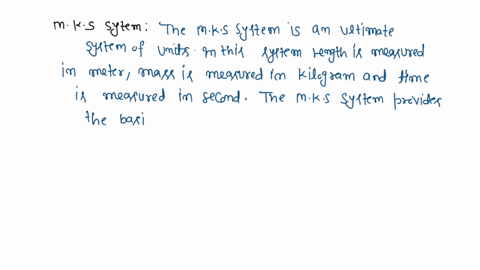 m.k.s sytem: The m.k.s system is an ultimate
system of units. In this system length is measured
in meter, mass is measured in kilogram and time
is measured in second. The m.k.s system provides
the basi